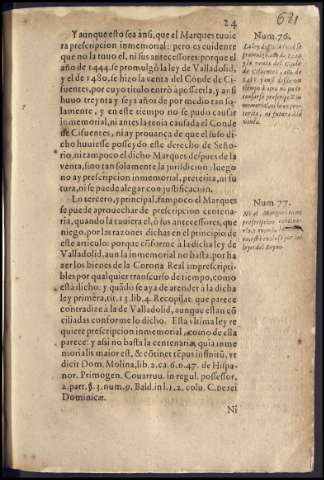 24
621
Y aunque esto sea ansi, que el Marques tuviera
prescripcion inmemorial: pero es cuidente
que no la tuuo el, ni sus antecessores porque el
año de 1444. se promulgó la ley de Valladolid,
y el de 1480. se hizo la venta del Conde de Ci-
fuentes, por cuyo titulo entrò à posseerla, y ansi
huuo treynta y seys años de por medio tan so-
lamente, y en este tiempo no se pudo causar
inmemorial, ni antes la tenia causada el Conde
de Cifuentes, ni ay prouança de que el suso di-
cho huuiesse posseydo este derecho de Seño-
rio, ni tampoco el dicho Marques despues de la
venta, sino tan solamente la jurisdicion: luego
no ay prescripcion inmemorial, preterita, ni fu
tura, ni se puede alegar con justificacion.
Lo tercero, y principal, tampoco el Marques
se puede aprouechar de prescripcion centena-
ria, quando la tuuiera el, ò sus antecessores, que
niego, por las razones dichas en el principio de
este articulo: porque cõforme à la dicha ley de
Valladolid, aun la inmemorial no basta, por ha
zer los bienes de la Corona Real imprescripti-
bles por qualquier transcurso de tiempo, como
està dicho: y quãdo se aya de atender à la dicha
ley primera, tit. 15. lib. 4. Recopilat. que parece
contradize à la de Valladolid, aunque estan cõ
ciliadas conforme lo dicho. Esta vltima ley re
quiere prescripcion inmemorial, como de ella
parece: y assi no basta la centenaria, quia inme
morialis maior est, & cõtinet tẽpus infinitũ, vt
dicit Dom. Molina, lib. 2. ca. 6. n. 47. de Hispa-
nor. Primogen. Couarruu. in regul. possessor,
2. part. §. 3. num. 9. Bald. in l. 1. 2. colu. C. De sei
Dominicæ.
Ni
Num. 76.
La ley de Valladolid se
promulgò año de 1444.
y la venta del Conde
de Cifuentes, año de
1480. y ansi desde un
tiempo à otro no pudo
Num. 77.
Ni el Marques tiene
prescripcion centena-
leyes del Reyno.